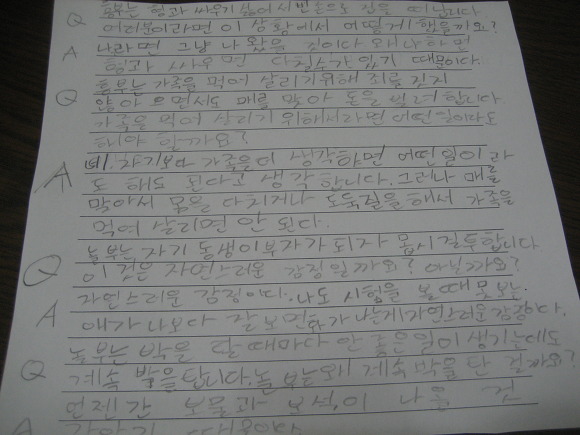 흥부는 형과 싸우기 싫어서 빈손으로 집을 떠납니다
Q 여러분이라면 이 상황에서 어떻게 했을까요?
A 나라면 그냥 나왔을 것이다 왜냐하면
형과 싸우면 다칠수가 있기 때문이다.
Q 흥부는 가족을 먹여 살리기위해 죄를 짓지
않아으면서도 매를 맞아 돈을 벌려 합니다.
가족을 먹여 살리기 위해서라면 어떤 일이라도
해야 할까요?
A 네. 자기보다 가족을 더 생각하면 어떤일이라
도 해도 된다고 생각합니다. 그러나 매를
맞아서 몸을 다치거나 도둑질을 해서 가족을
먹여 살리면 안 된다.
놀부는 자기 동생이부자가 되자 몹시 질투합니다
Q 이것은 자연스러운 감정일까요? 아닐까요?
자연스러운 감정이다. 나도 시험을 볼때 못보는
A 애가 나보다 잘 보면화가 나는게자연스러운감정이다.
놀부는 박을 탈 때마다 안 좋은일이 생기는데도
Q 계속 박을탑니다. 놀부는왜 계속박을 탄 걸까요?
언젠간 보물과 보석이 나올 것
A 같아기 때문이다